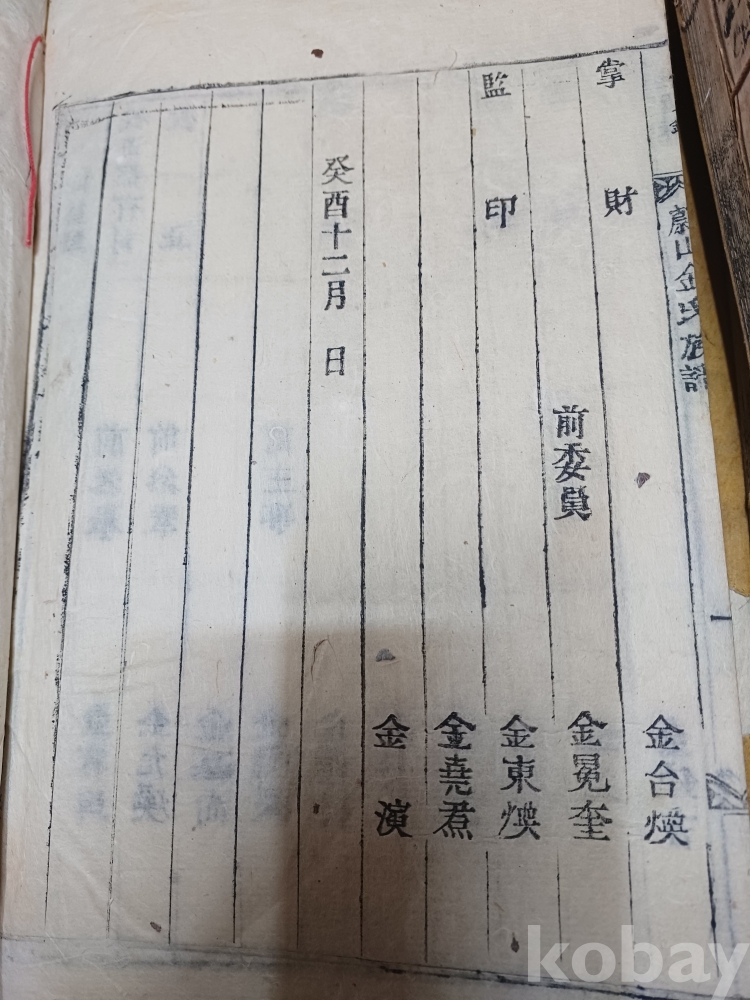 蔚山金氏族譜
一
掌財 金台煥
前委員 金冕奎
監印 金東煥
金堯焄
金演
癸酉十二月 日
kobay